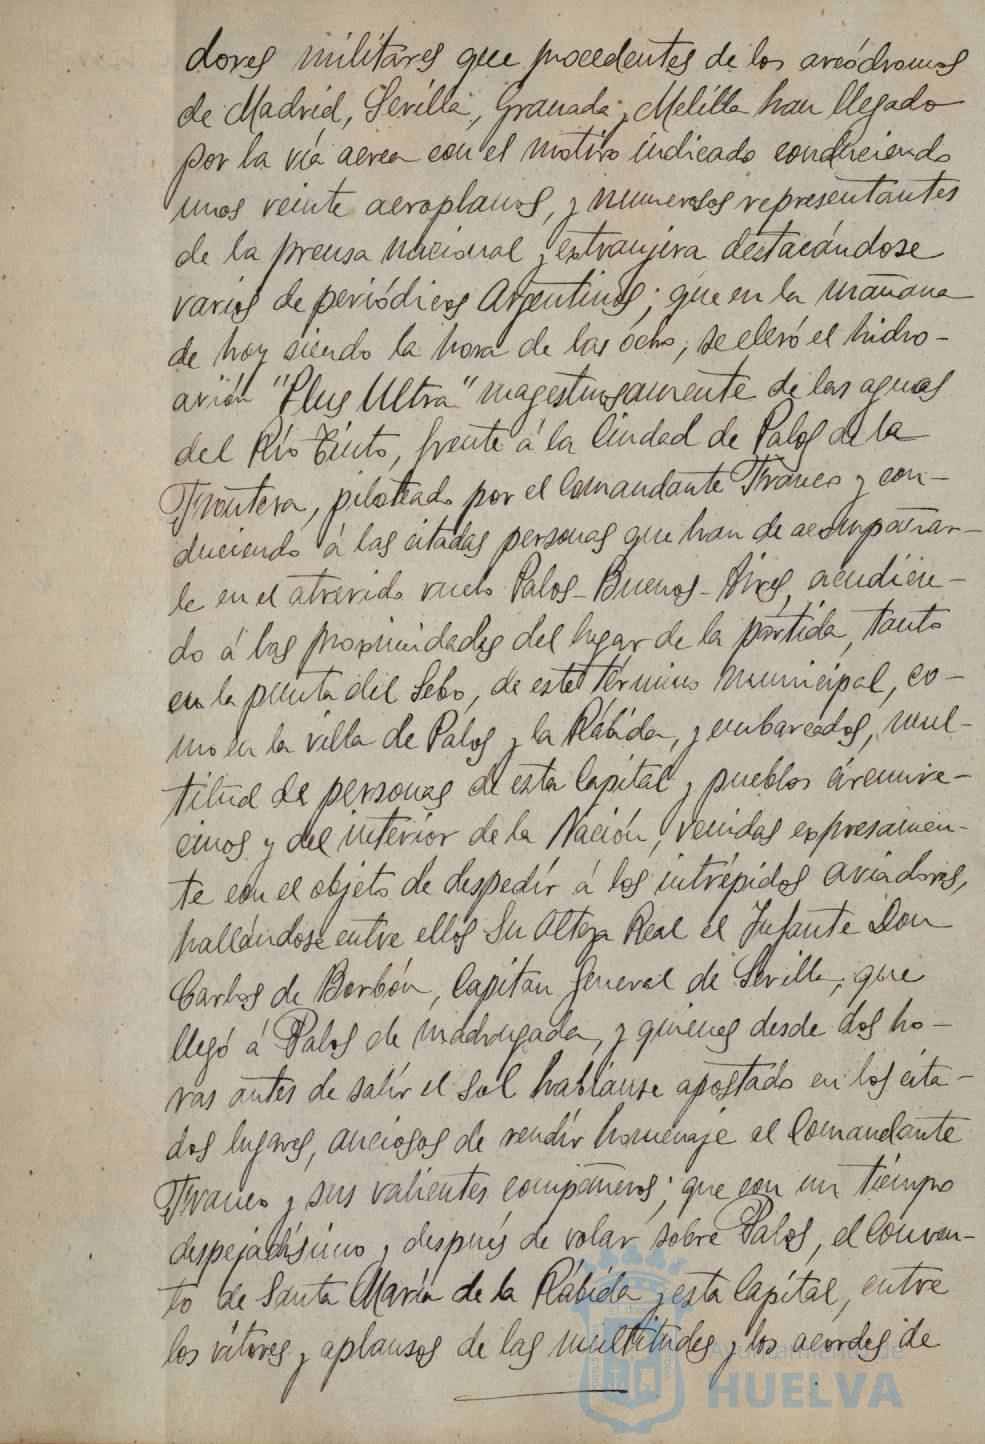 dores militares que procedentes de los areódromos
de Madrid, Sevilla, Granada y Melilla han llegado
por la vía aerea con el motivo indicado conduciendo
unos veinte aeroplanos, y numerosos representantes
de la prensa nacional y extranjera destacándose
varios de periódicos Argentinos; que en la mañana
de hoy siendo la hora de las ocho, se elevó el hidro-
avión "Plus Ultra" magestuosamente de las aguas
del Río Tinto, frente á la Ciudad de Palos de la
Frontera, piloteado por el Comandante Franco y con-
duciendo á las citadas personas que han de acompañar-
le en el atrevido vuelo Palos-Buenos-Aires, acudien-
do á las proximidades del lugar de la partida, tanto
en la punta del Sebo, de este término municipal, co-
mo en la villa de Palos y la Rábida, y embarcados, mul-
titud de personas de esta Capital y pueblos circunve-
cinos y del interior de la Nación, venidas expresamen-
te con el objeto de despedir á los intrépidos aviadores,
hallándose entre ellos Su Alteza Real el Infante Don
Carlos de Borbón, Capitan General de Sevilla, que
llegó á Palos de madrugada, y quienes desde dos ho-
ras antes de salir el sol habíanse apostado en los cita-
dos lugares, anciosos de rendir homenaje al Comandante
Franco y sus valientes compañeros; que con un tiempo
despejadísimo y después de volar sobre Palos, el Conven-
to de Santa María de la Rábida y esta Capital, entre
los vítores y aplausos de las multitudes y los acordes de
Ayuntamiento de
HUELVA